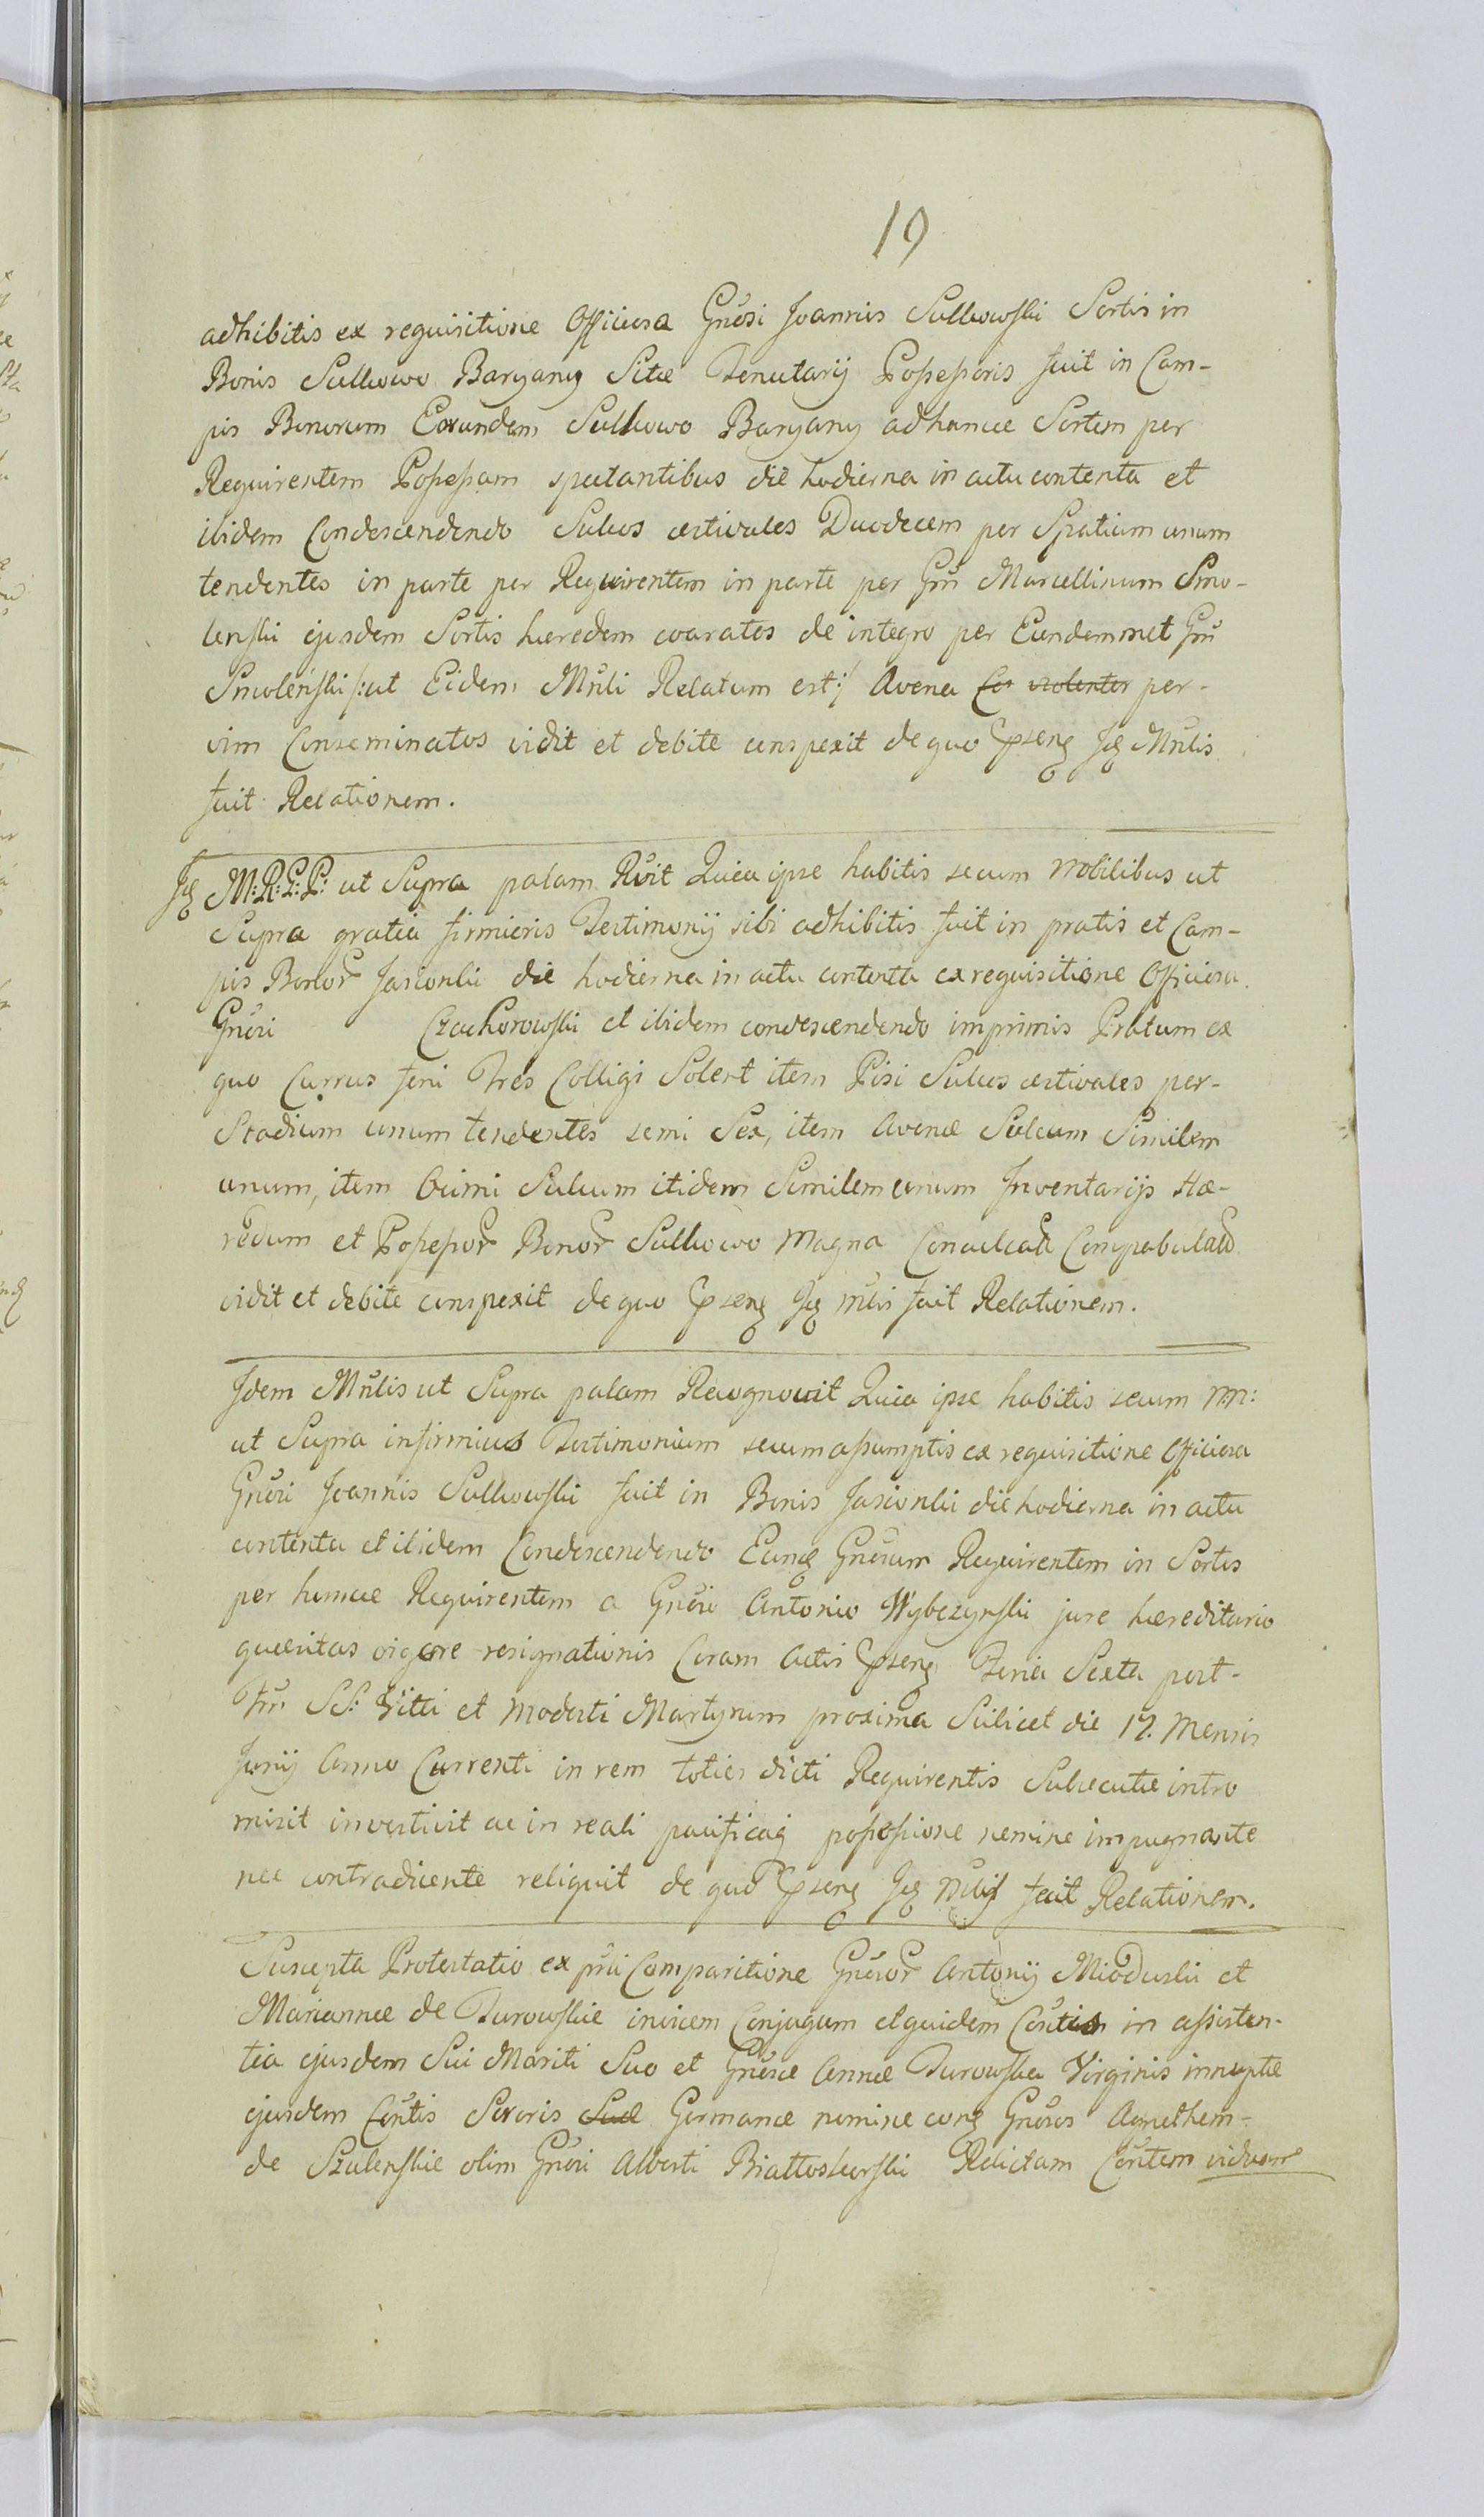 19
adhibitis ex requisitione Officiosa Gnŏsi Joannis Sulkowski Sortis in
Bonis Sulkowo Baryany Sitæ Tenutarij Possessoris fuit in Cam-
pis Bonorum Eorundem Sulkowo Baryany ad hancce Sortem per
Requirentem Possessam spectantibus die hodierna in actu contenta et
ibidem Condescendendo Sulcos æstivales Duodecem per Spatium unum
tendentes in parte per Requirentem in parte per Gnŭ Marcellinum Smo-
lenski ejusdem Sortis hæredem coaratos de integro per Eundemmet Gnŭ
Smolenski /:ut Eidem Mnli Relatum est:/ Avena Co violenter per-
vim Conseminatos vidit et debite conspexit de quo pseng Jdq Mnlis
fecit Relationem.
Jdq M:R:G:P: ut Supra palam Rvit Quia ipse habitis secum Nobilibus ut
Supra gratia firmioris Testimonij sibi adhibitis fuit in pratis et Cam-
pis Bonor Jasionki die hodierna in actu contenta ex requisitione Officiosa
Gnŏsi Czachorowski et ibidem condescendendo imprimis Pratum ex
quo Currus feni Tres Colligi Solent item Pisi Sulcos æstivales per-
Stadium unum tendentes semi Sex, item Avenæ Sulcum Similem
unum, item Ocimi Sulcum itidem Similem unum Inventarijs Hæ-
redum et Possessor Bonor Sulkowo Magna Conculcata Compabulata
vidit et debite conspexit de quo pseng Jdq mnlis fecit Relationem.
Jdem Mnlis ut Supra palam Recognovit Quia ipse habitis secum NN:
ut Supra in firmius Testimonium secum assumptis ex requisitione Officiosa
Gnŏsi Joannis Sulkowski fuit in Bonis Jasionki die hodierna in actu
contenta et ibidem Condescendendo Eundq Gnŏsum Requirentem in Sortes
per huncce Requirentem a Gnŏso Antonio Wybczynski jure hæreditario
quæsitas vigore resignationis Coram Actis pseng Feria Sexta post-
Fm SS: Viti et Modesti Martyrum proxima Scilicet die 17. Mensis
Junij Anno Currenti in rem toties dicti Requirentis Subsecutæ intro
misit investivit ac in reali pacificaq possessione nemine impugnante
nec contradicente reliquit de quo pseng Jdq Mnlis fecit Relationem.
Suscepta Protestatio ex pnli Comparitione Gnŏsor Antonij Mioduski et
Mariannæ de Turowskie invicem Conjugum et quidem Contis in assisten-
tia ejusdem Sui Mariti Suo et Gnŏsæ Annæ Turowska Virginis innuptæ
ejusdem Contis Sororis Suæ Germanæ nomine cong Gnŏsos Agnethem-
de Szulenskie olim Gnŏsi Alberti Białłoskorski Relictam Contem viduam